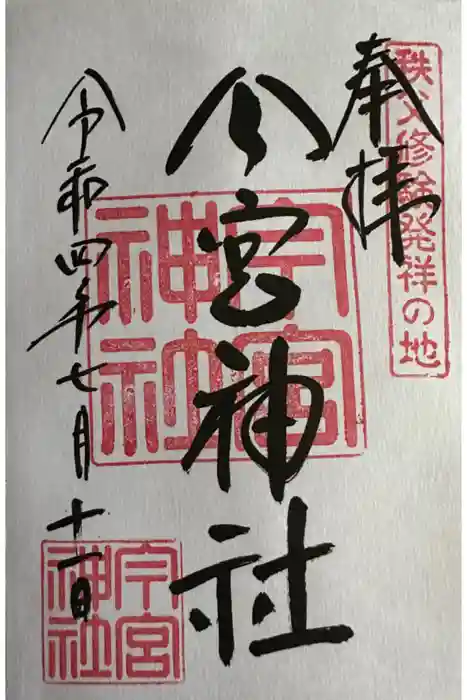 秩父修験発祥の地
奉拝
今宮神社
令和四年七月十一日
今宮
神社
今宮
神社